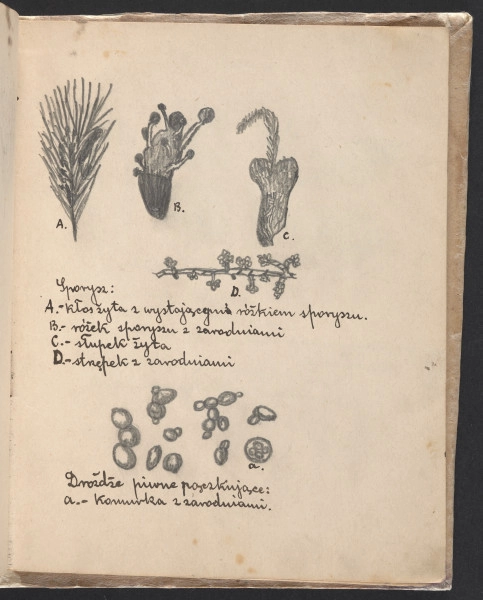 A.
B.
C.
D.
Sporysz:
A.- kłos żyta z wystającemi różkiem sporyszu.
B.- różek sporyszu z zarodniami
C.- słupek żyta
D.- strzępek z zarodniami
a.
Drożdże piwne pączkujące:
a.- komórka z zarodniami.